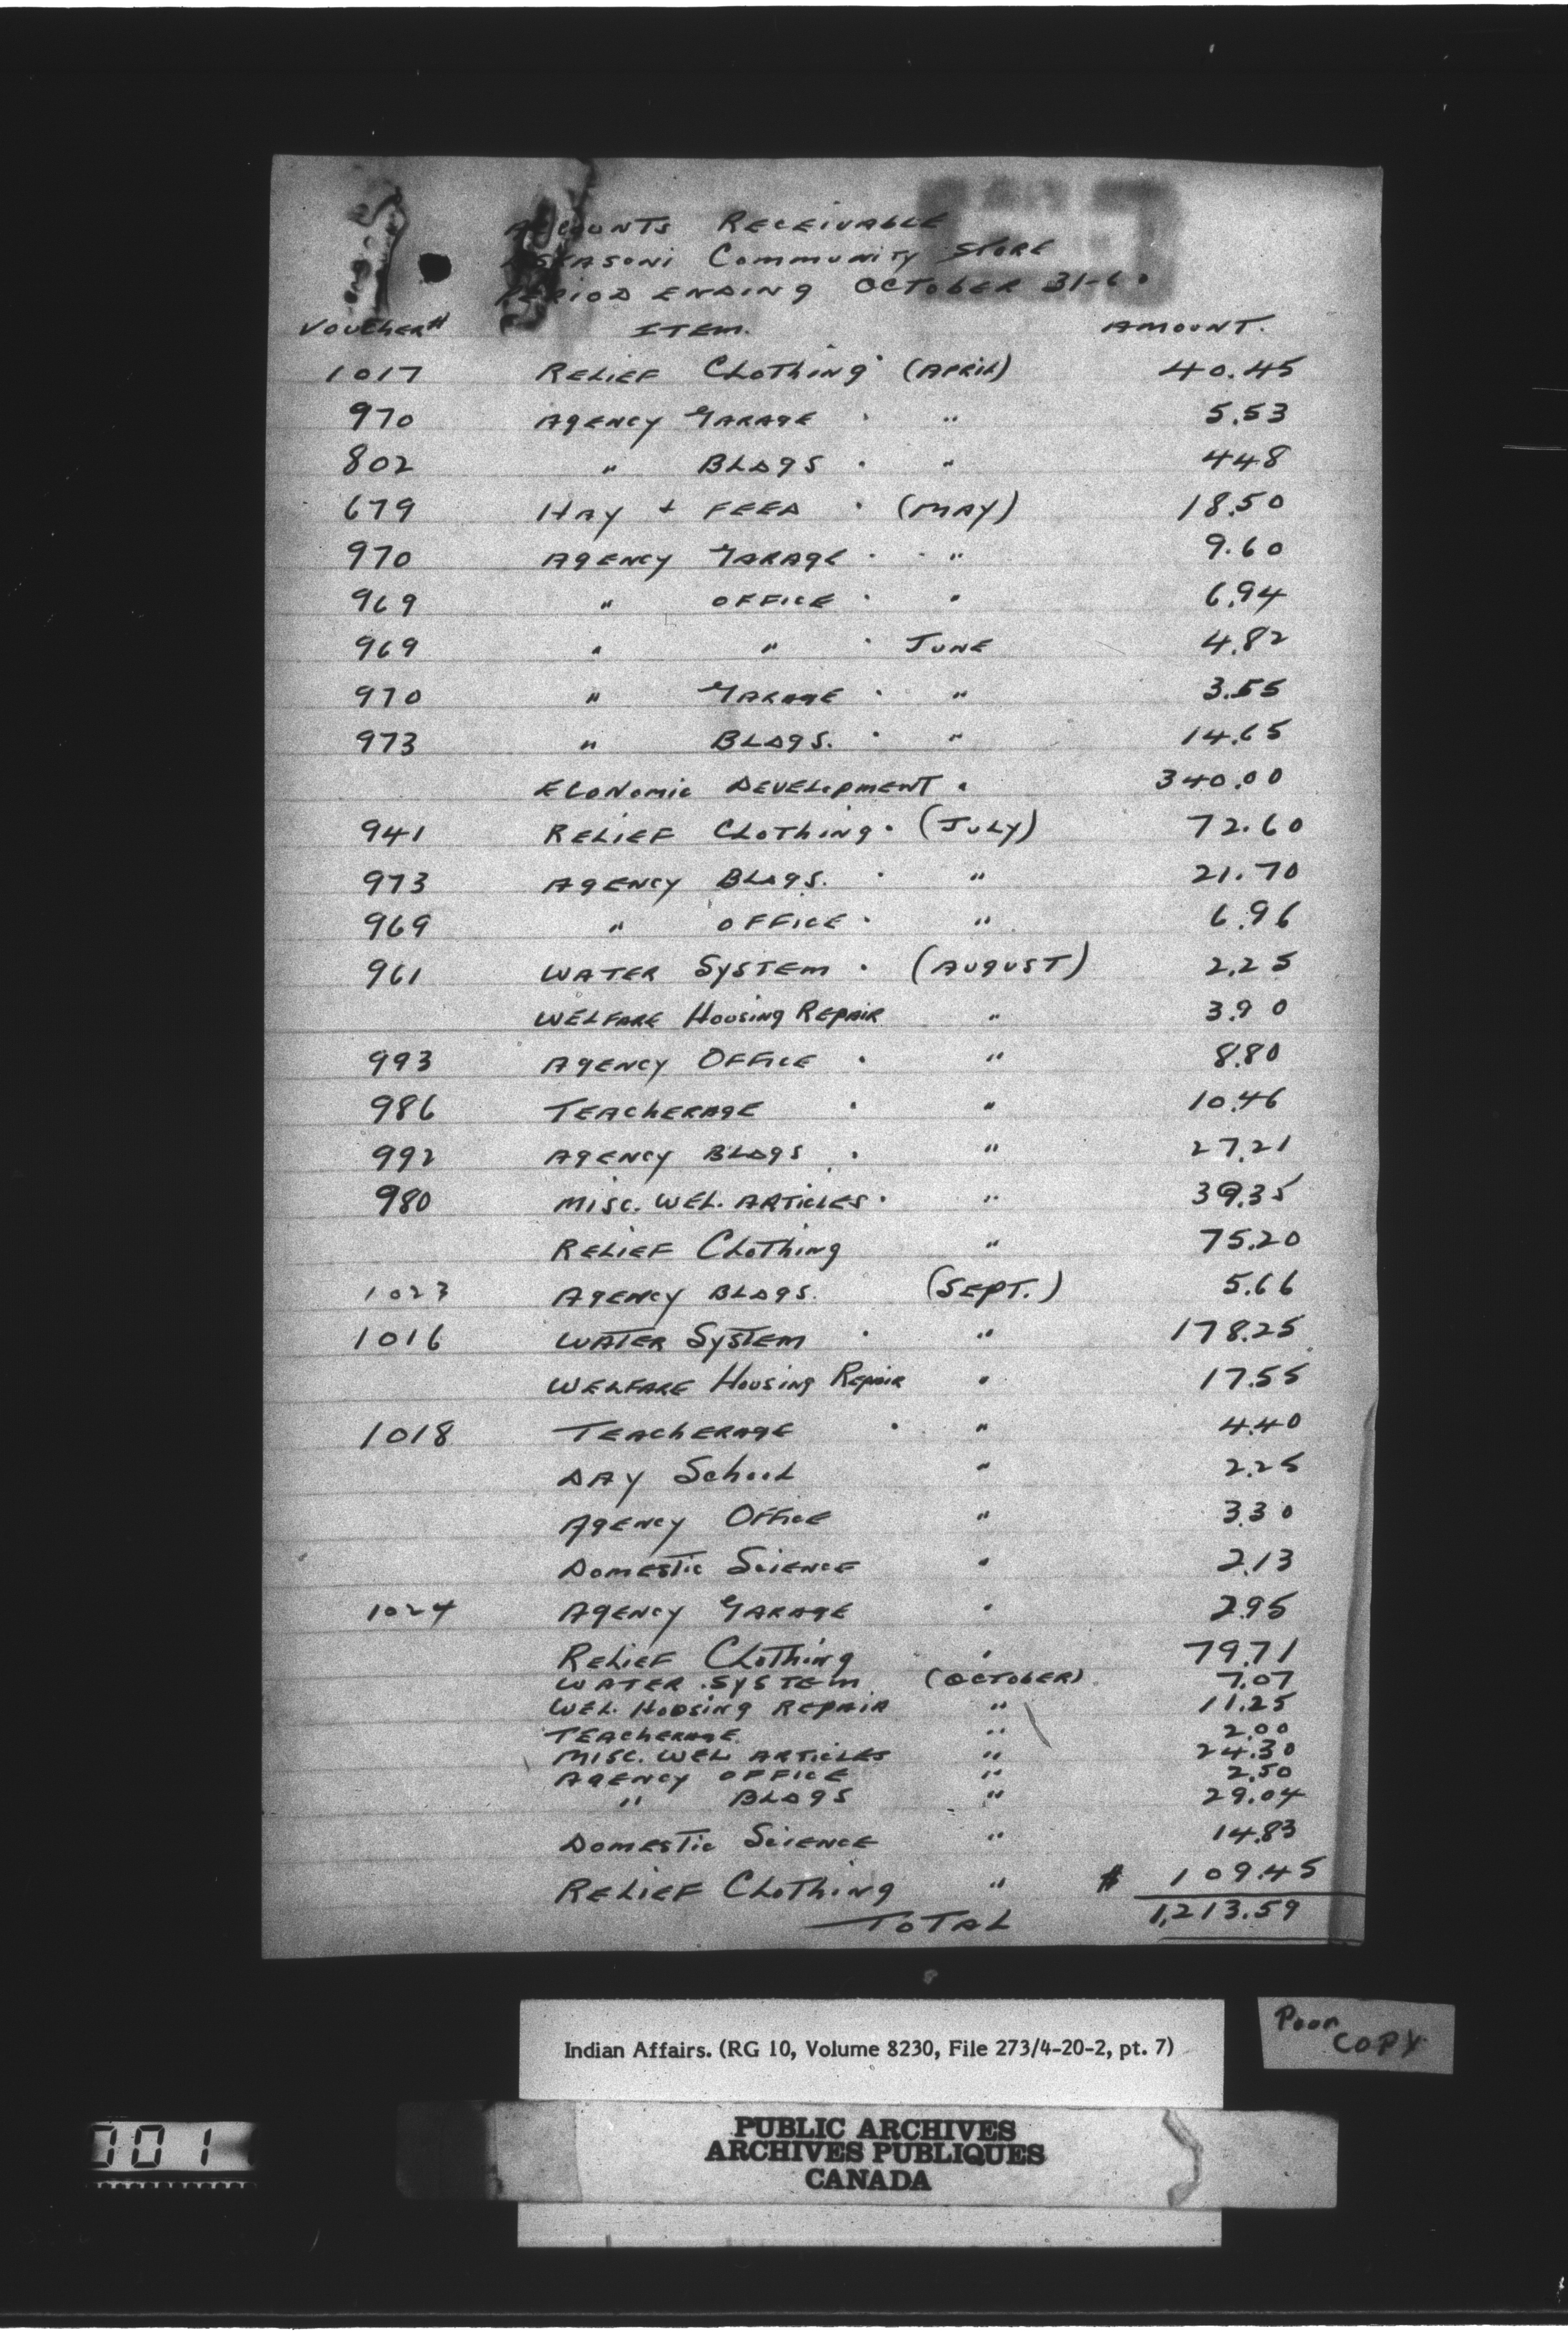 ACCOUNTS RECEIVABLE
ESKASONI COMMUNITY STORE
PERIOD ENDING OCTOBER 31-60
VOUCHER# ITEM. AMOUNT.
1017 RELIEF CLOTHING (APRIL) 40.45
970 AGENCY GARAGE " 5.53
802 " BLDGS " 448
679 HAY + FEED (MAY) 18.50
970 AGENCY GARAGE " 9.60
969 " OFFICE " 6.94
969 " " JUNE 4.82
970 " GARAGE " 3.55
973 " BLDGS. " 14.65
ECONOMIC DEVELOPMENT 340.00
941 RELIEF CLOTHING (JULY) 72.60
973 AGENCY BLDGS. " 21.70
969 " OFFICE " 6.96
961 WATER SYSTEM (AUGUST) 2.25
WELFARE HOUSING REPAIR " 3.90
993 AGENCY OFFICE " 8.80
986 TEACHERAGE " 10.46
992 AGENCY BLDGS " 27.21
980 MISC. WEL. ARTICLES " 39.35
RELIEF CLOTHING " 75.20
1023 AGENCY BLDGS. (SEPT.) 5.66
1016 WATER SYSTEM " 178.25
WELFARE HOUSING REPAIR " 17.55
1018 TEACHERAGE " 4.40
DAY SCHOOL " 2.25
AGENCY OFFICE " 3.30
DOMESTIC SCIENCE " 2.13
1024 AGENCY GARAGE " 2.95
RELIEF CLOTHING " 79.71
WATER SYSTEM (OCTOBER) 7.07
WEL. HOUSING REPAIR " 11.25
TEACHERAGE " 2.00
MISC. WEL ARTICLES " 24.30
AGENCY OFFICE " 2.50
" BLDGS " 29.04
DOMESTIC SCIENCE " 14.83
RELIEF CLOTHING " $ 109.45
TOTAL 1,213.59
Indian Affairs. (RG 10, Volume 8230, File 273/4-20-2, pt. 7)
Poor COPY
PUBLIC ARCHIVES
ARCHIVES PUBLIQUES
CANADA
001